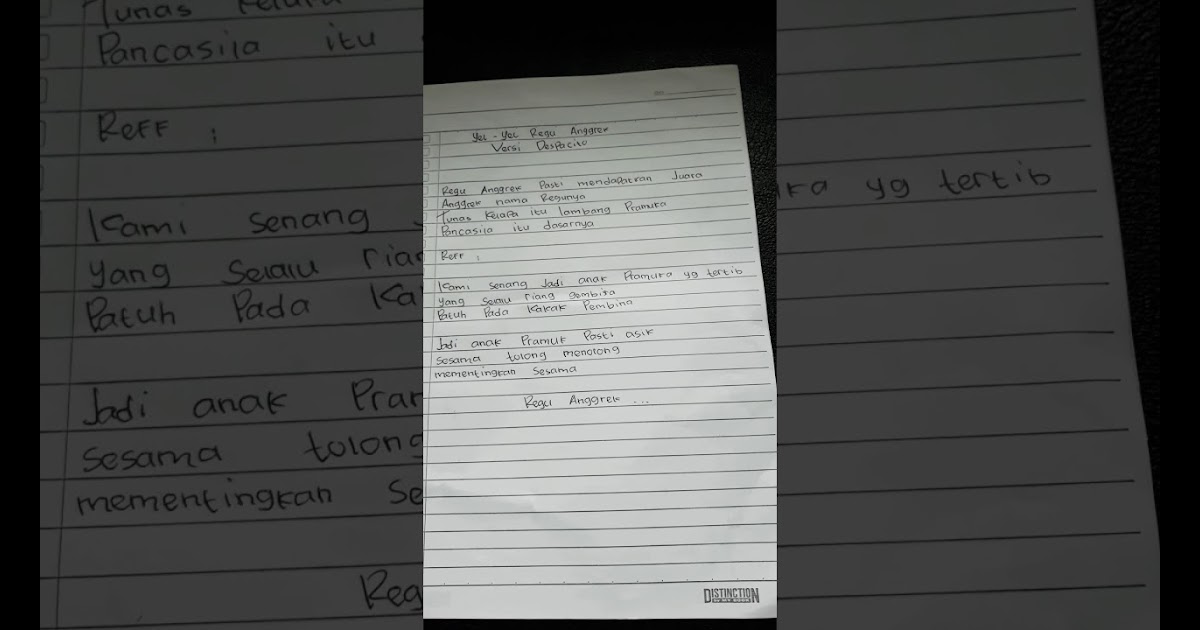 Yel - Yel Regu Anggrek
Versi Despacito
Regu Anggrek Pasti mendapatkan Juara
Anggrek nama Regunya
Tunas Kelapa itu lambang Pramuka
Pancasila itu dasarnya
Reff :
Kami Senang Jadi anak Pramuka yg tertib
yang Selalu riang gembira
Patuh Pada Kakak Pembina
Jadi anak Pramuk Pasti asik
Sesama tolong menolong
mementingkan Sesama
Regu Anggrek ...
DISTINCTION